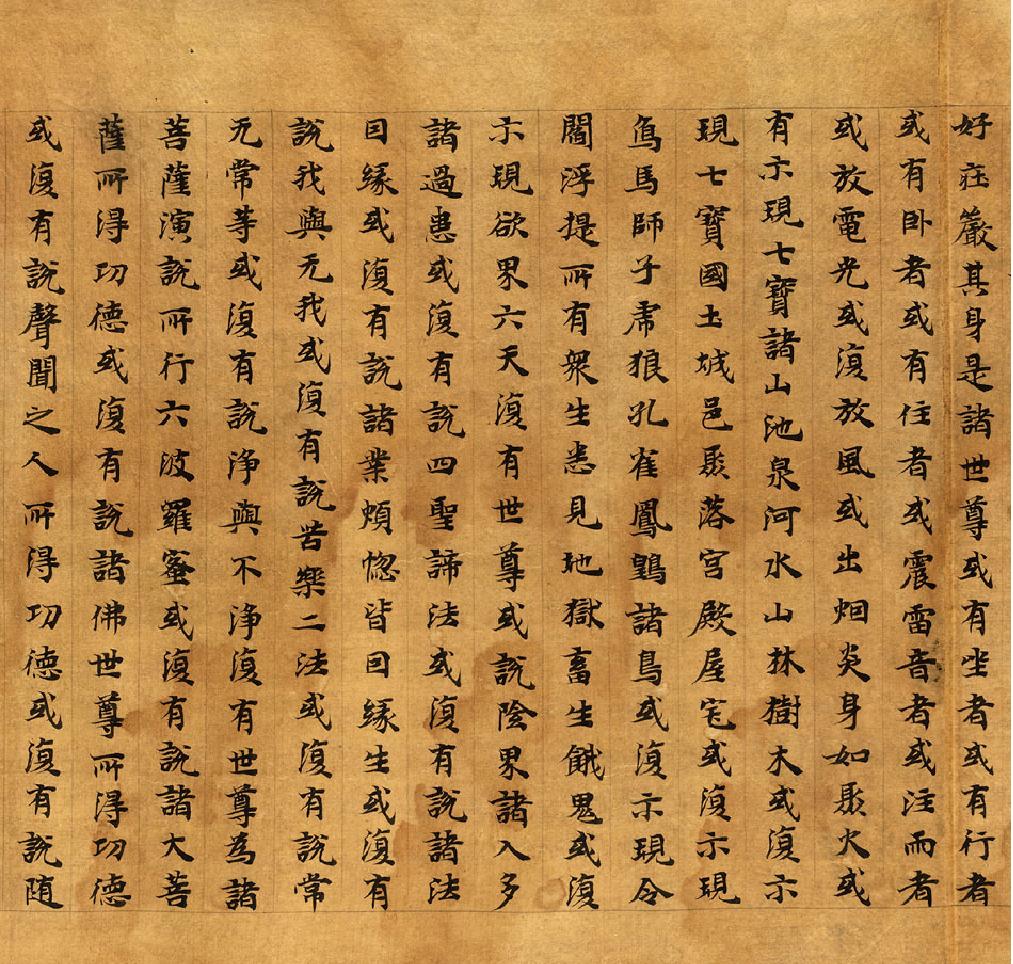 好莊嚴其身是諸世尊或有坐者或有行者
或有臥者或有住者或震雷音者或注雨者
或放電光或復放風或出烟炎身如聚火或
有示現七寶諸山池泉河水山林樹木或復示
現七寶國土城邑聚落宮殿屋宅或復示現
烏馬師子虎狼孔雀鳳鶚諸鳥或復示現令
閻浮提所有眾生悉見地獄畜生餓鬼或復
示現欲界六天復有世尊或說陰界諸入多
諸過患或復有說四聖諦法或復有說諸法
因緣或復有說諸業煩惚皆因緣生或復有
說我與无我或復有說苦樂二法或復有說常
无常等或復有說淨與不淨復有世尊為諸
菩薩演說所行六波羅蜜或復有說諸大菩
薩所得功德或復有說諸佛世尊所得功德
或復有說聲聞之人所得功德或復有說隨